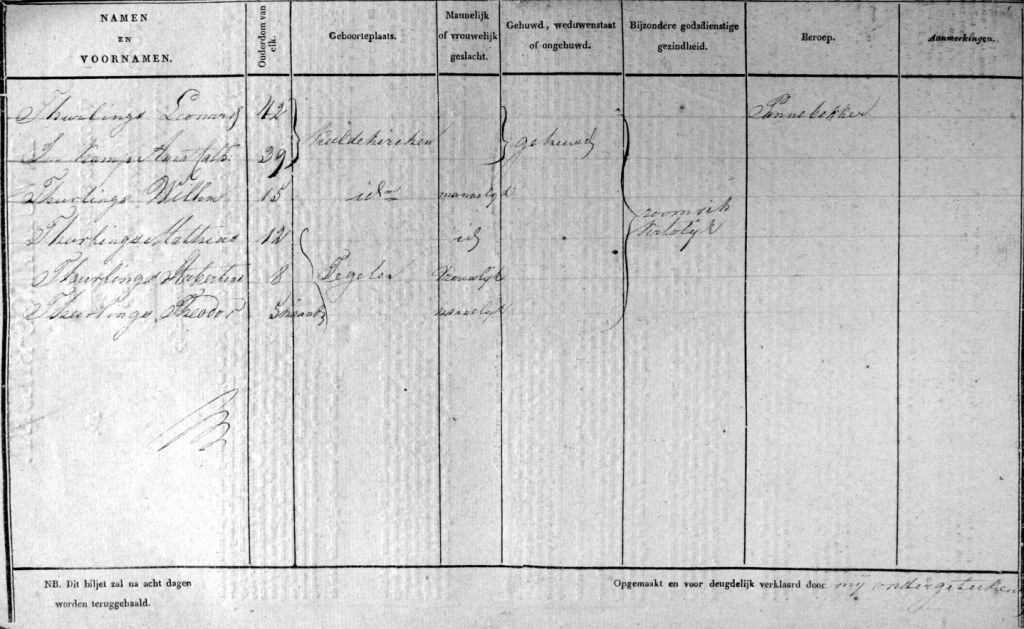 NAMEN EN VOORNAMEN. Ouderdom van elk. Geboorteplaats. Mannelijk of vrouwelijk geslacht. Gehuwd, weduwenstaat of ongehuwd. Bijzondere godsdienstige gezindheid. Beroep. Aanmerkingen.
Thurlings Leonard 42 Pannebekker
Kamp 39 Kaldekircken gehuwd
Thurlings Willem 15 idm mannelyk
roomsch Katolyk
Thurlings Mathias 12 id
Thurlings 8 Tegelen Vrouwlyk
Thurlings Theodor 5 maand mannelyk
NB. Dit biljet zal na acht dagen worden teruggehaald.
Opgemaakt en voor deugdelijk verklaard door my ondergeteeken